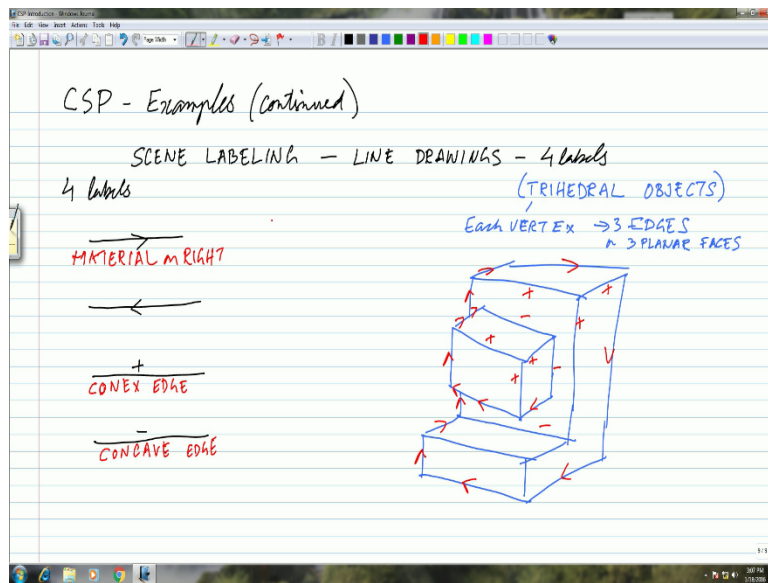 CSP-Introduction - Windows Journal
File Edit View Insert Actions Tools Help
Page Width
B I
CSP - Examples (Continued)
SCENE LABELING - LINE DRAWINGS - 4 labels
4 labels
(TRIHEDRAL OBJECTS)
Each VERTEX → 3 EDGES
n 3 PLANAR FACES
MATERIAL on RIGHT
+
CONEX EDGE
-
CONCAVE EDGE
+ +
- +
+
+ -
+
-
9/9
3:07 PM